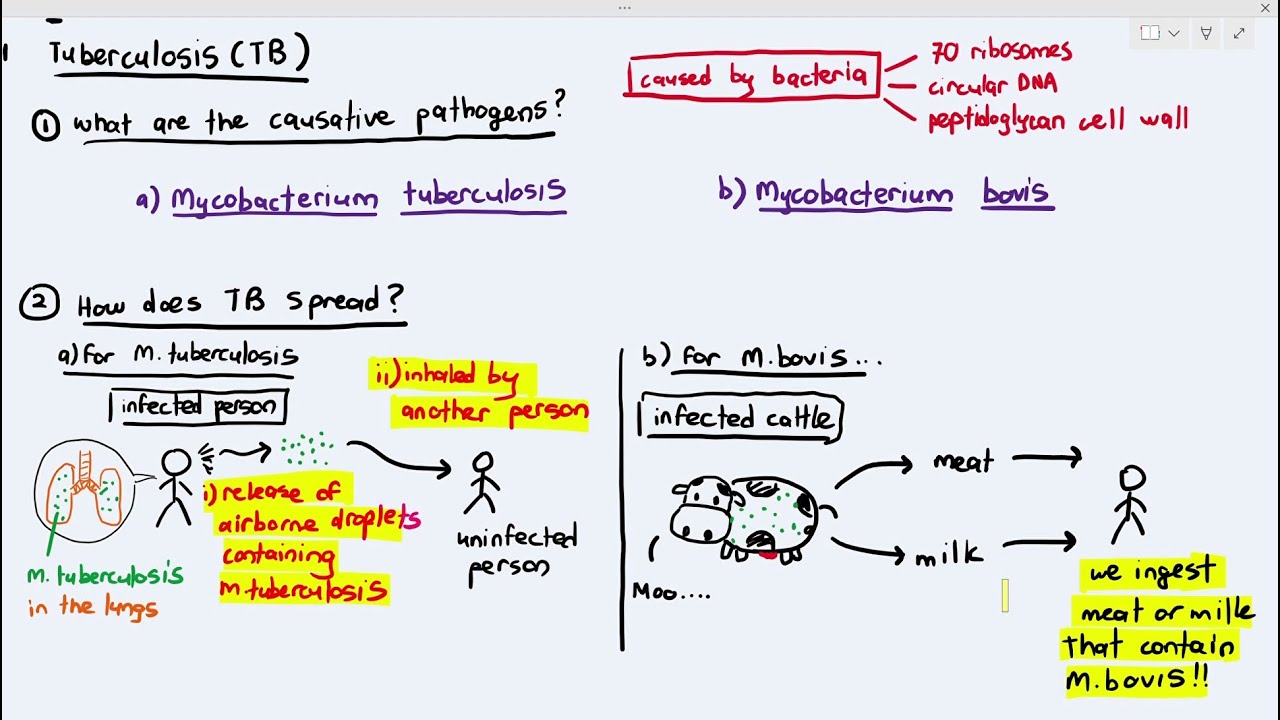 Tuberculosis (TB)
caused by bacteria
70 ribosomes
circular DNA
peptidoglycan cell wall
① what are the causative pathogens?
a) Mycobacterium tuberculosis
b) Mycobacterium bovis
② How does TB spread?
a) for M. tuberculosis
infected person
ii) inhaled by
another person
i) release of
airborne droplets
containing
m. tuberculosis
uninfected
person
M. tuberculosis
in the lungs
b) for M. bovis...
infected cattle
meat
milk
Moo....
we ingest
meat or milk
that contain
M. bovis!!